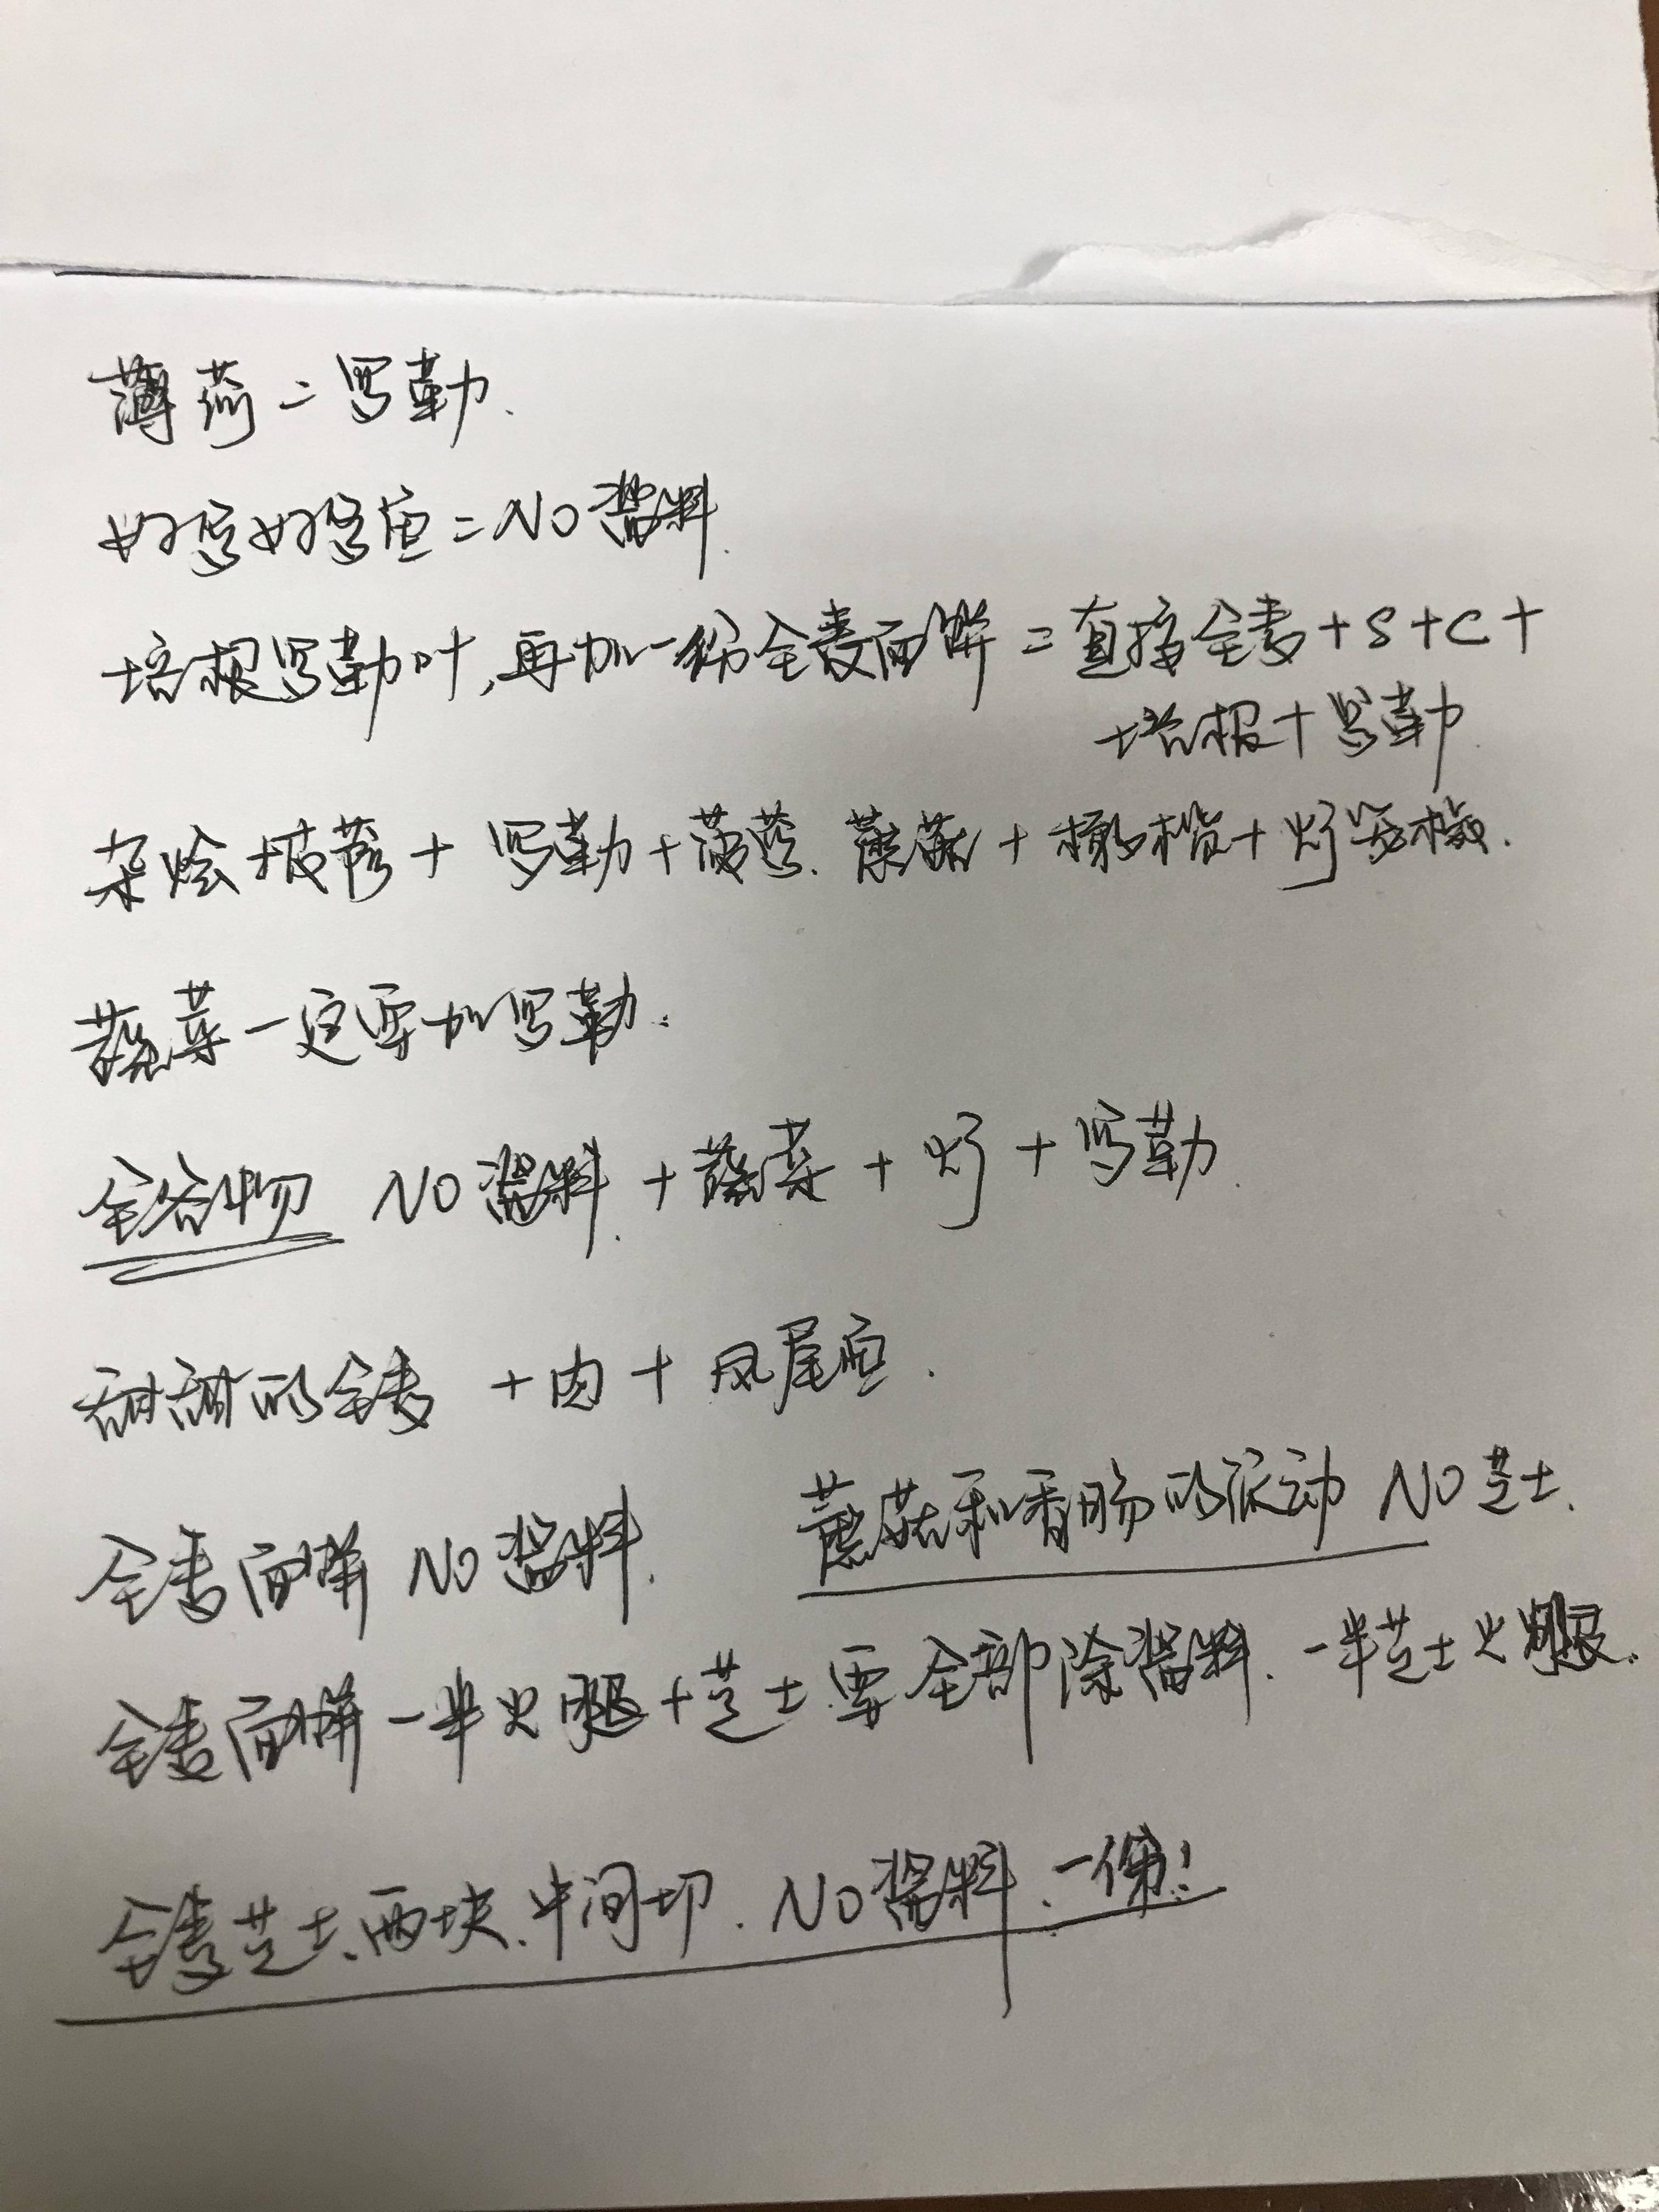 薄荷=罗勒.
好家好家鱼=NO酱料.
培根罗勒叶,再加一份全麦面饼=直接全麦+S+C+
培根+罗勒.
杂烩+披萨+罗勒+菠萝.蘑菇+橄榄+灯笼椒.
蔬菜一定要加罗勒.
全谷物 NO酱料.+蔬菜+灯+罗勒.
甜甜的全麦 +肉+凤尾鱼.
全麦面饼 NO酱料.
蘑菇和香肠的派动 NO芝士.
全麦面饼一半火腿+芝士.要全部除酱料.一半芝士火腿.
全麦芝士、两块、中间切. NO酱料.一份!